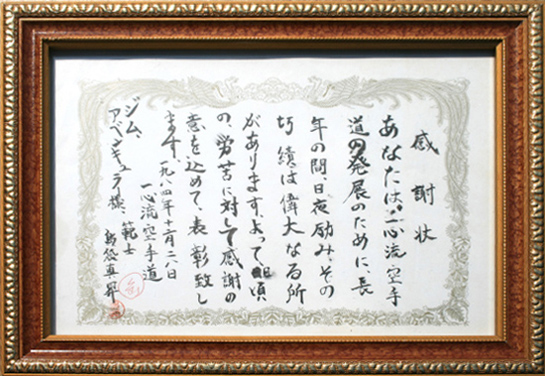 感謝状
あなたは、一心流空手
道の発展のために、長
年の間、日夜励み、その
功績は偉大なる所
があります、よって、日頃
の、労苦に対して感謝の
意を込めて、表彰致し
ます、一九八四年十二月二日
一心流空手道
範士
島袋真昇
ジム、
アベンキュラ様、